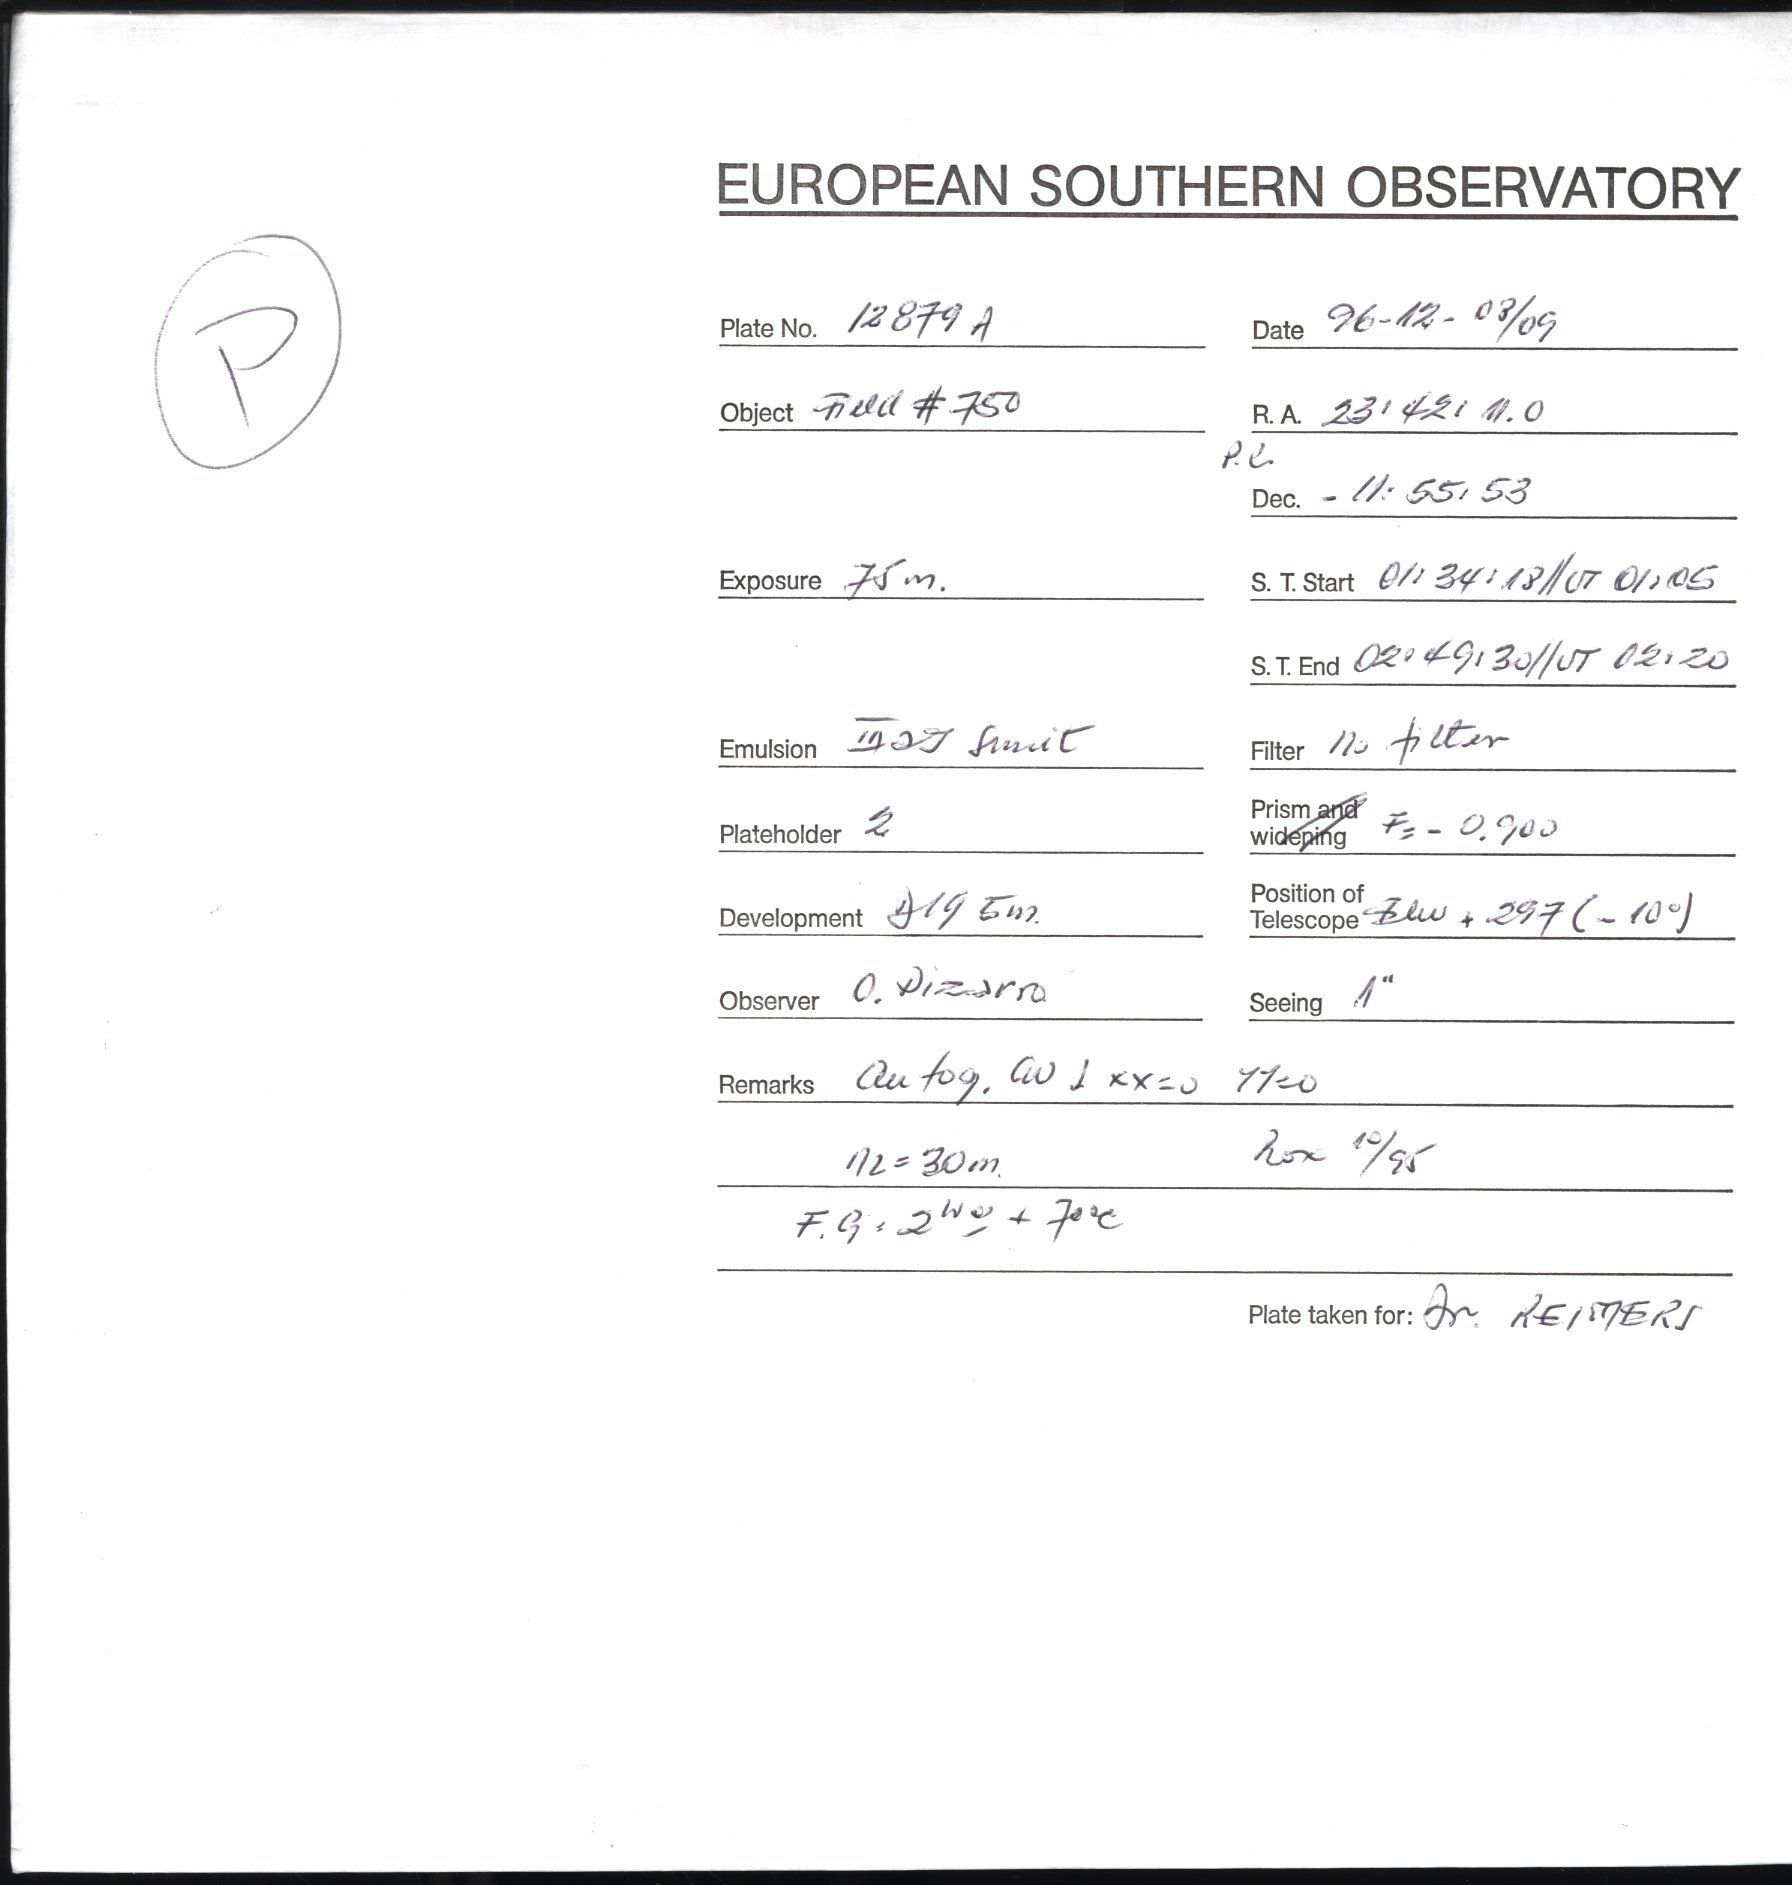 EUROPEAN SOUTHERN OBSERVATORY
P
Plate No. 12879 A Date 96-12-08/09
Object Field # 750 R. A. 23:42:11.0
Dec. - 11:55:53
Exposure 75 m. S. T. Start 01:34:18//UT 01:05
S. T. End 02:49:30//UT 02:20
Emulsion Filter no filter
Plateholder 2 Prism and widening F= - 0.900
Development D19 5m. Position of Telescope + 297 (-10°)
Observer O. Pizarro Seeing 1"
Remarks xx=0 YY=0
= 30m. 10/95
F.G: 2
Plate taken for: Dr. REIMERS